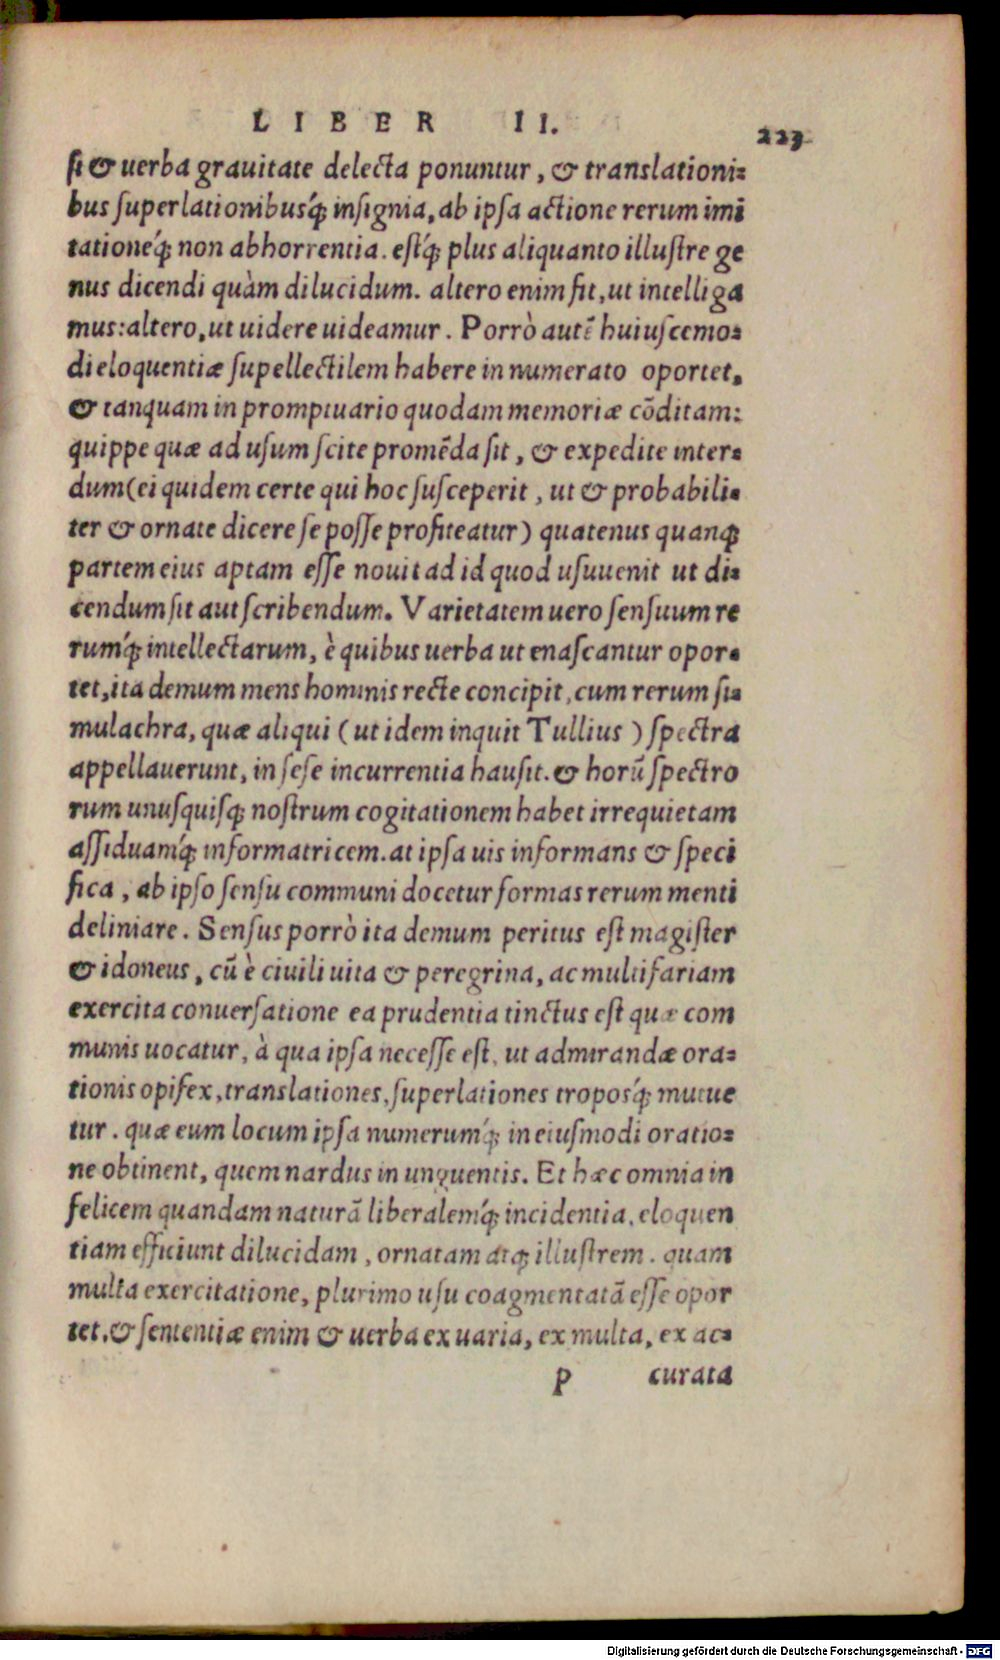 LIBER II. 223
si & uerba grauitate delecta ponuntur, & translationi=
bus superlationibusq́; insignia, ab ipsa actione rerum imi
tationeq́; non abhorrentia. estq́; plus aliquanto illustre ge
nus dicendi quàm dilucidum. altero enim fit, ut intelliga
mus: altero, ut uidere uideamur. Porrò autē huiuscemo=
di eloquentiæ supellectilem habere in numerato oportet,
& tanquam in promptuario quodam memoriæ cōditam:
quippe quæ ad usum scite promēda sit, & expedite inter=
dum (ei quidem certe qui hoc susceperit, ut & probabili=
ter & ornate dicere se posse profiteatur) quatenus quanq;
partem eius aptam esse nouit ad id quod usuuenit ut di=
cendum sit aut scribendum. Varietatem uero sensuum re
rumq́; intellectarum, è quibus uerba ut enascantur opor=
tet, ita demum mens hominis recte concipit, cum rerum si=
mulachra, quæ aliqui (ut idem inquit Tullius) spectra
appellauerunt, in sese incurrentia hausit. & horū spectro
rum unusquisq; nostrum cogitationem habet irrequietam
assiduamq́; informatricem. at ipsa uis informans & speci
fica, ab ipso sensu communi docetur formas rerum menti
deliniare. Sensus porrò ita demum peritus est magister
& idoneus, cū è ciuili uita & peregrina, ac multifariam
exercita conuersatione ea prudentia tinctus est quæ com
munis uocatur, à qua ipsa necesse est, ut admirandæ ora=
tionis opifex, translationes, superlationes troposq́; mutue
tur. quæ eum locum ipsa numerumq́; in eiusmodi oratio=
ne obtinent, quem nardus in unguentis. Et hæc omnia in
felicem quandam naturā liberalemq́; incidentia, eloquen
tiam efficiunt dilucidam, ornatam atq; illustrem. quam
multa exercitatione, plurimo usu coagmentatā esse opor
tet. & sententiæ enim & uerba ex uaria, ex multa, ex ac=
p curata
Digitalisierung gefördert durch die Deutsche Forschungsgemeinschaft - DFG